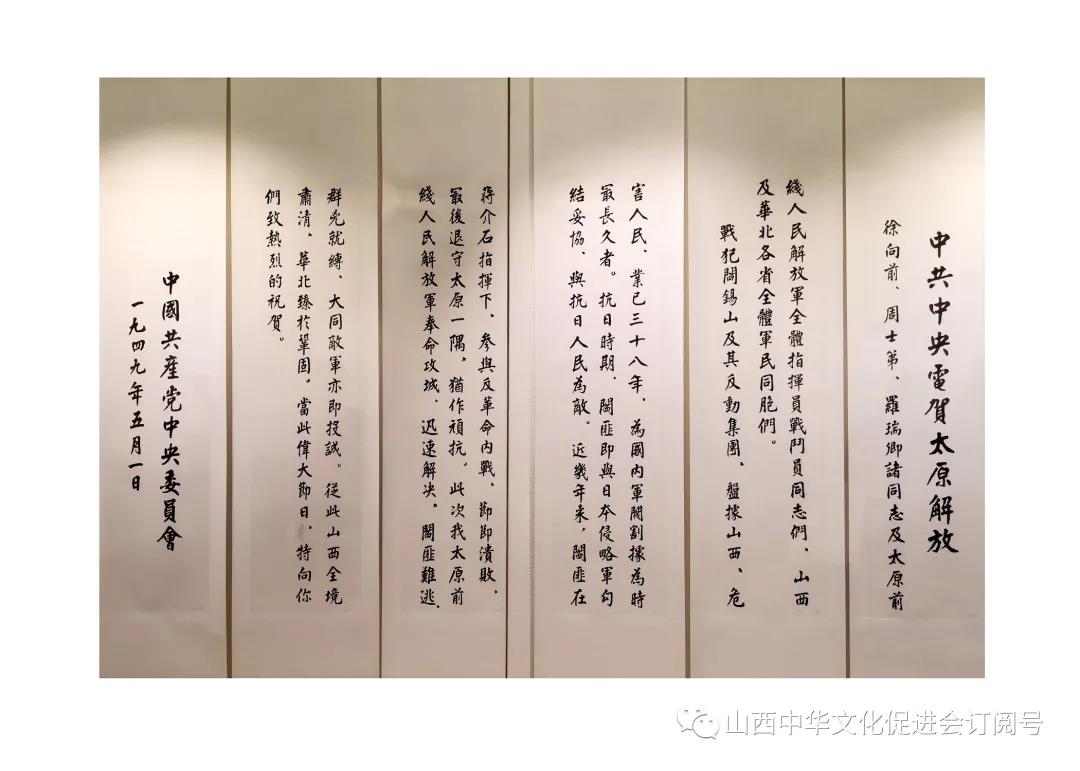 中共中央電賀太原解放
徐向前、周士第、羅瑞卿諸同志及太原前
綫人民解放軍全體指揮員戰鬥員同志們、山西
及華北各省全體軍民同胞們。
戰犯閻錫山及其反動集團、盤據山西、危
害人民、業已三十八年、為國内軍閥割據為時
最長久者。抗日時期、閻匪即與日本侵略軍勾
結妥協、與抗日人民為敵。近幾年来，閻匪在
蔣介石指揮下、參與反革命内戰、節節潰敗、
最後退守太原一隅，猶作頑抗。此次我太原前
綫人民解放軍奉命攻城、迅速解决、閻匪難逃、
群兇就縛、大同敵軍亦即投誠。從此山西全境
肅清、華北臻於鞏固。當此偉大節日、特向你
們致熱烈的祝賀。
中國共產党中央委員會
一九四九年五月一日
山西中华文化促进会订阅号